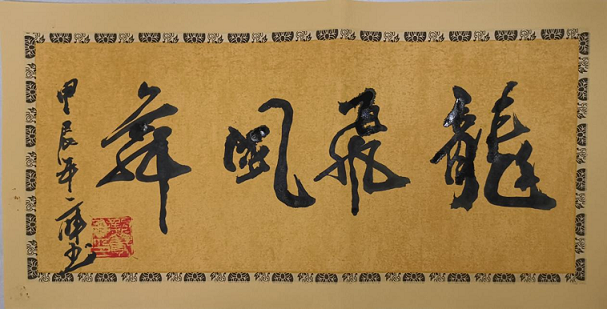 龍飛鳳舞
甲辰年